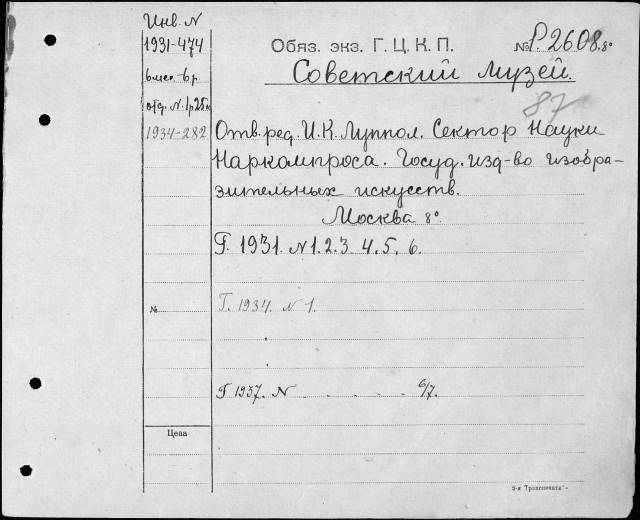 Инв. N
1931-474
6 мес - 6 р.
отд. N. 1р 25к
1934-282
№
Цена
Обяз. экз. Г. Ц. К. П.
№ Р. 2608. 8°
Советский Музей.
87
Отв. ред. И. К. Луппол. Сектор Науки
Наркомпроса. Госуд. изд-во изобра-
зительных искусств.
Москва 8°.
Г. 1931. N 1. 2. 3. 4. 5. 6.
Г. 1934. N 1.
Г 1937. N . . . . . 6/7.